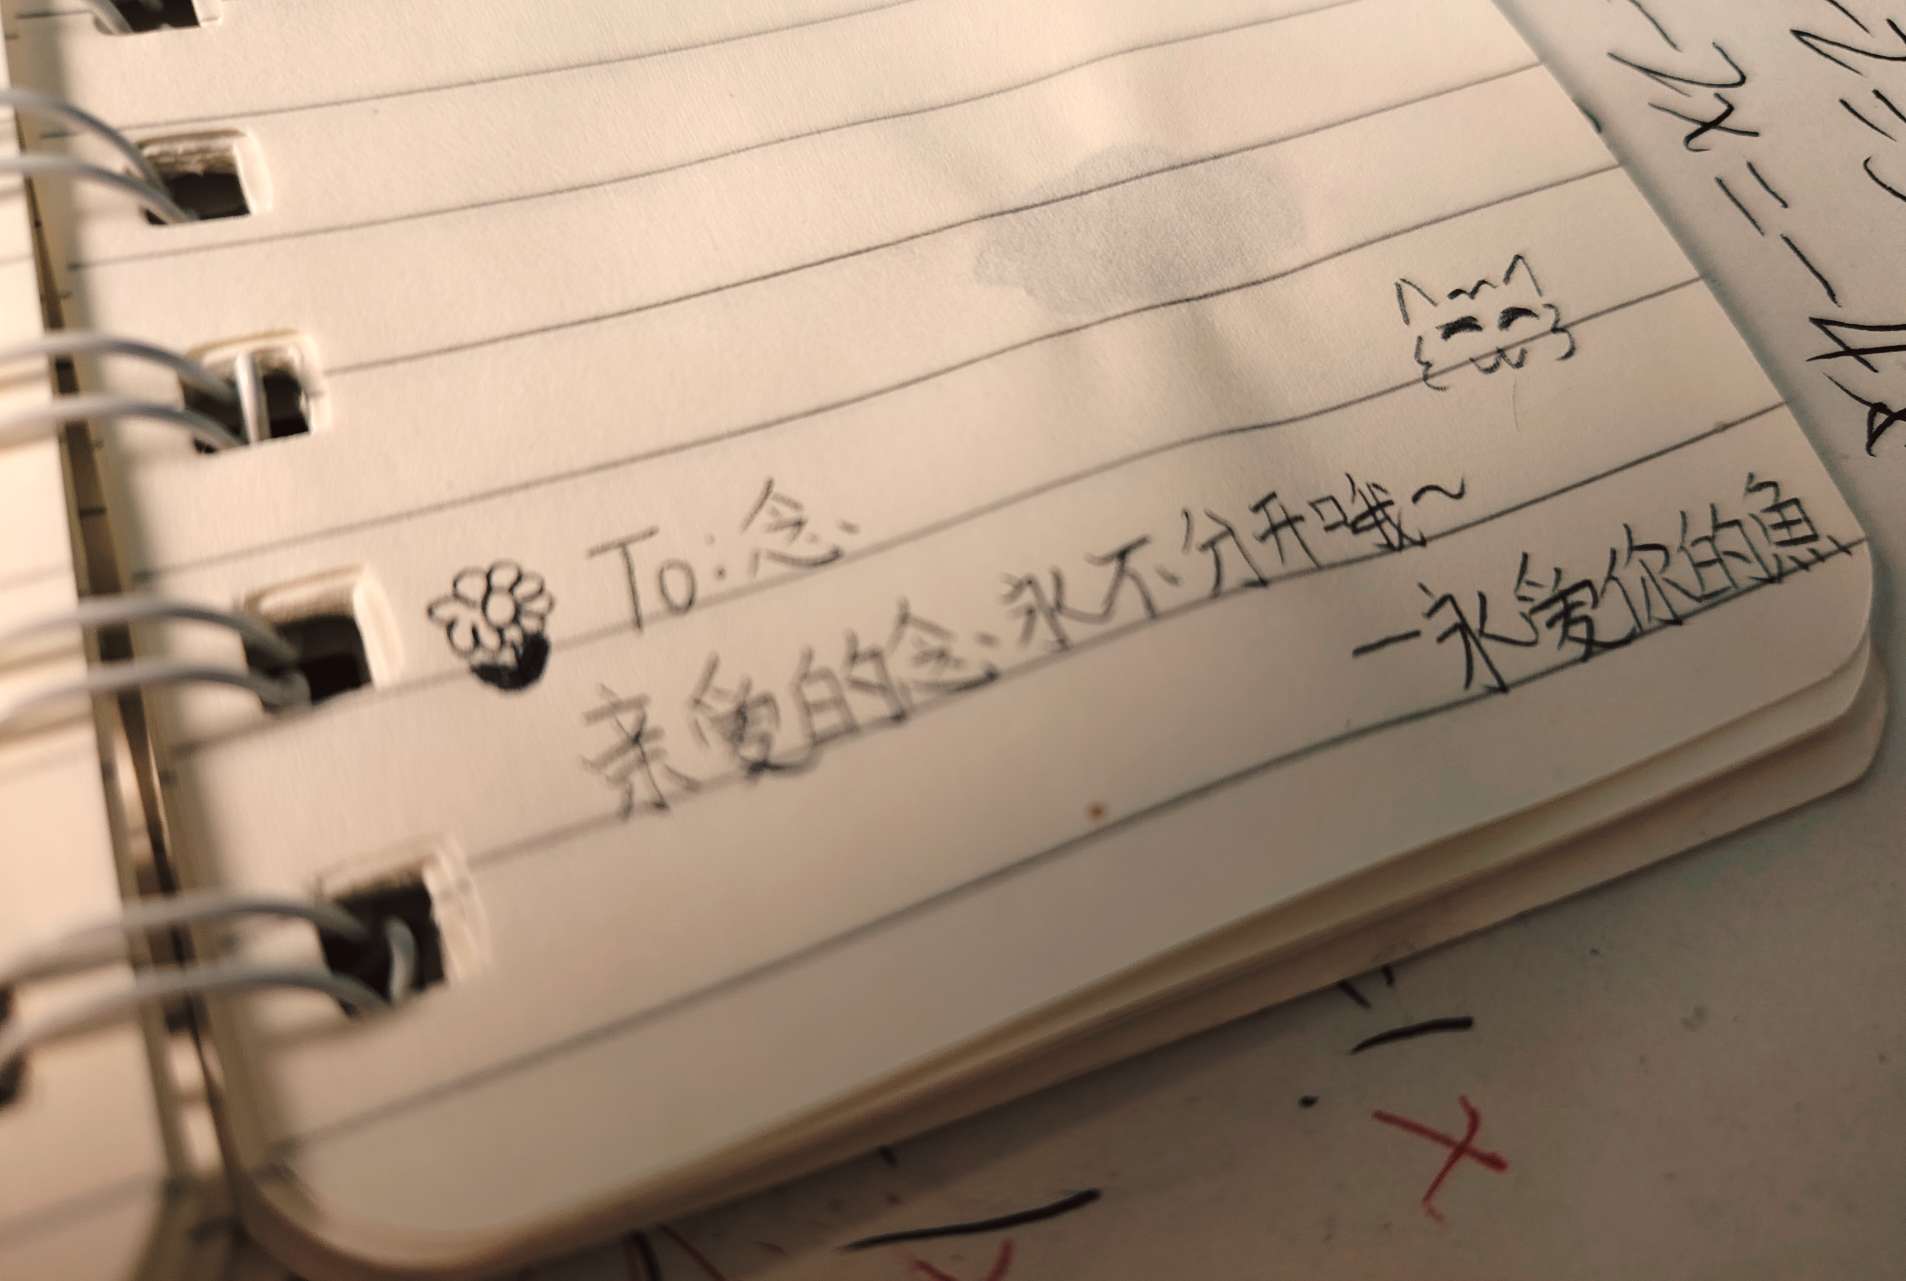 To:念
亲爱的念、永不分开哦~
一永爱你的魚